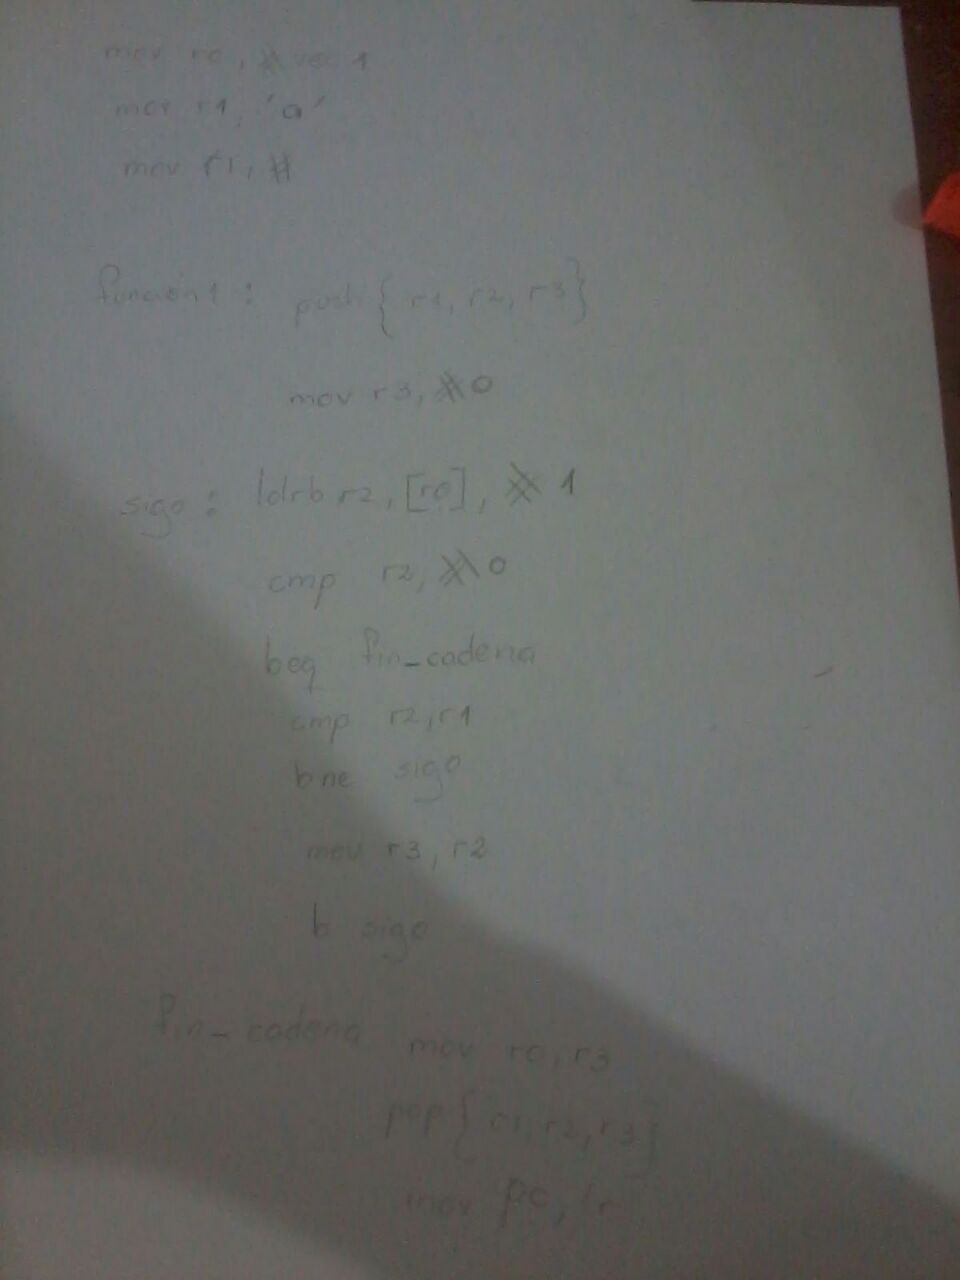 mov r0, # vec 1
mov r1, 'a'
mov r1, #
funcion1 : push { r1, r2, r3}
mov r3, #0
sigo : ldrb r2, [r0], # 1
cmp r2, #0
beq fin_cadena
cmp r2, r1
bne sigo
mov r3, r2
b sigo
fin_cadena mov r0, r3
pop { r1, r2, r3}
mov pc, lr